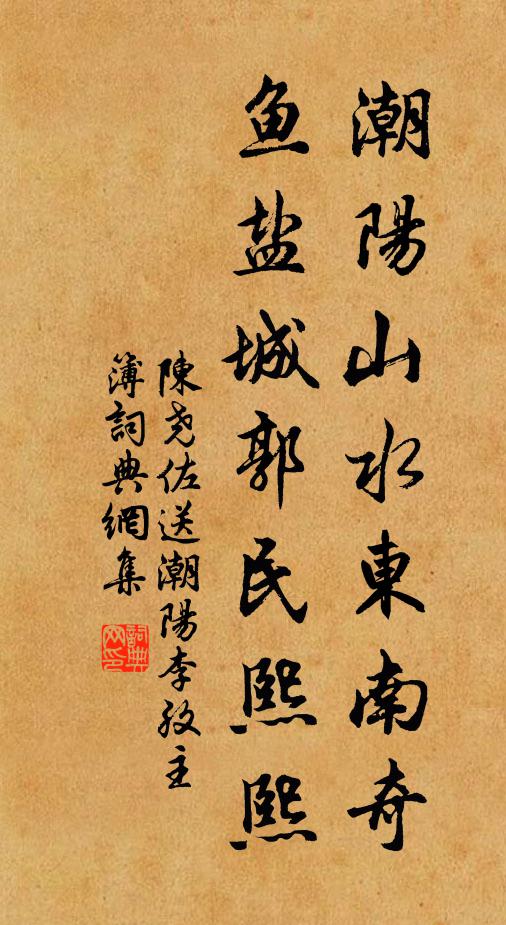 潮陽山水東南奇
鱼盐城郭民熙熙
陳尧佐送潮陽李孜主
簿詞典網集
詞典
网印